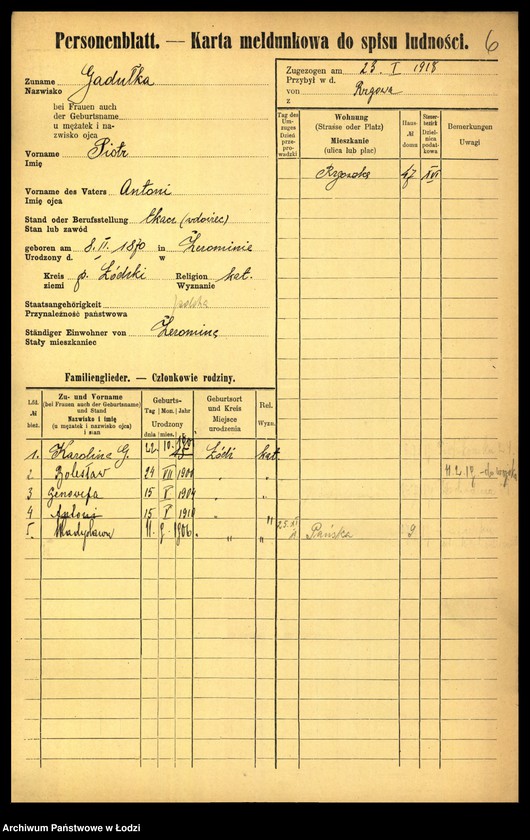 Personenblatt. — Karta meldunkowa do spisu ludności. 6
Zuname Gadułka
Nazwisko
bei Frauen auch
der Geburtsname
u mężatek i na-
zwisko ojca
Vorname Piotr
Imię
Vorname des Vaters Antoni
Imię ojca
Stand oder Berufsstellung tkacz (wdowiec)
Stan lub zawód
geboren am 8. II. 1870 in Żerominie
Urodzony d. w
Kreis p. Łódzki Religion kat.
ziemi Wyznanie
Staatsangehörigkeit polska
Przynależność państwowa
Ständiger Einwohner von Żeromina
Stały mieszkaniec
Zugezogen am 23. I 1918
Przybył w d.
von Rzgowa
z
Tag des Um-zuges Dzień prze-pro-wadzki
Wohnung
(Strasse oder Platz)
Mieszkanie
(ulica lub plac)
Haus-№ domu
Steuer-bezirk Dziel-nica podat-kowa
Bemerkungen
Uwagi
Rzgowska 47 XVI
11.2.19
25. XI
Pańska 9
Familienglieder. — Członkowie rodziny.
Lfd. № bież.
Zu- und Vorname
(bei Frauen auch der Geburtsname)
und Stand
Nazwisko i imię
(u mężatek i nazwisko ojca)
i stan
Geburts-
Tag Mon. Jahr
Urodzony
dnia mies. r.
Geburtsort
und Kreis
Miejsce
urodzenia
Rel.
Wyzn.
1. Karolina G. 22 10. Łódź kat
2 Bolesław 24 VII 1901 " "
3 Genowefa 15 I 1904 "
4 Antoni 15 I 1910 " "
5. Władysława 11. 9. 1906 " " "
Archiwum Państwowe w Łodzi